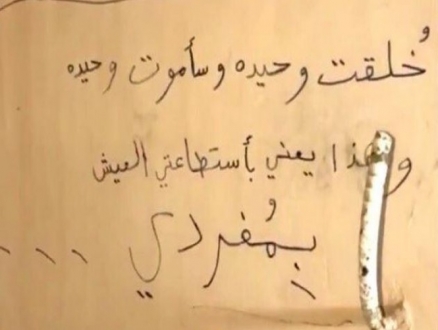 خُلقت وحيده وسأموت وحيده
وهذا يعني بأستطاعتي العيش
بمُفردي ...